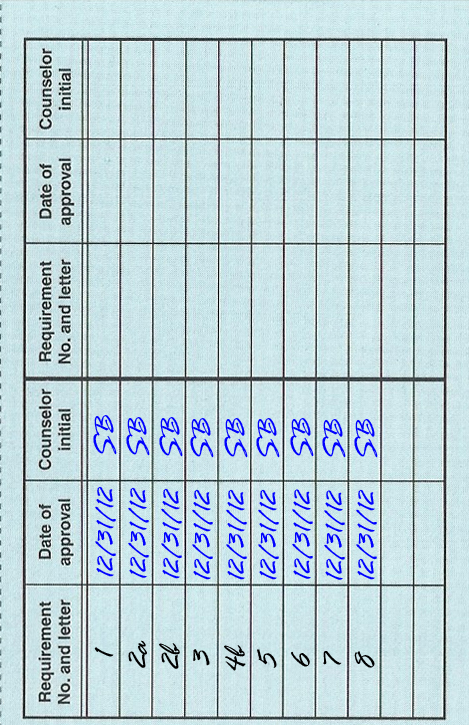 Requirement No. and letter Date of approval Counselor initial Requirement No. and letter Date of approval Counselor initial
1 12/31/12 SB
2a 12/31/12 SB
2b 12/31/12 SB
3 12/31/12 SB
4b 12/31/12 SB
5 12/31/12 SB
6 12/31/12 SB
7 12/31/12 SB
8 12/31/12 SB